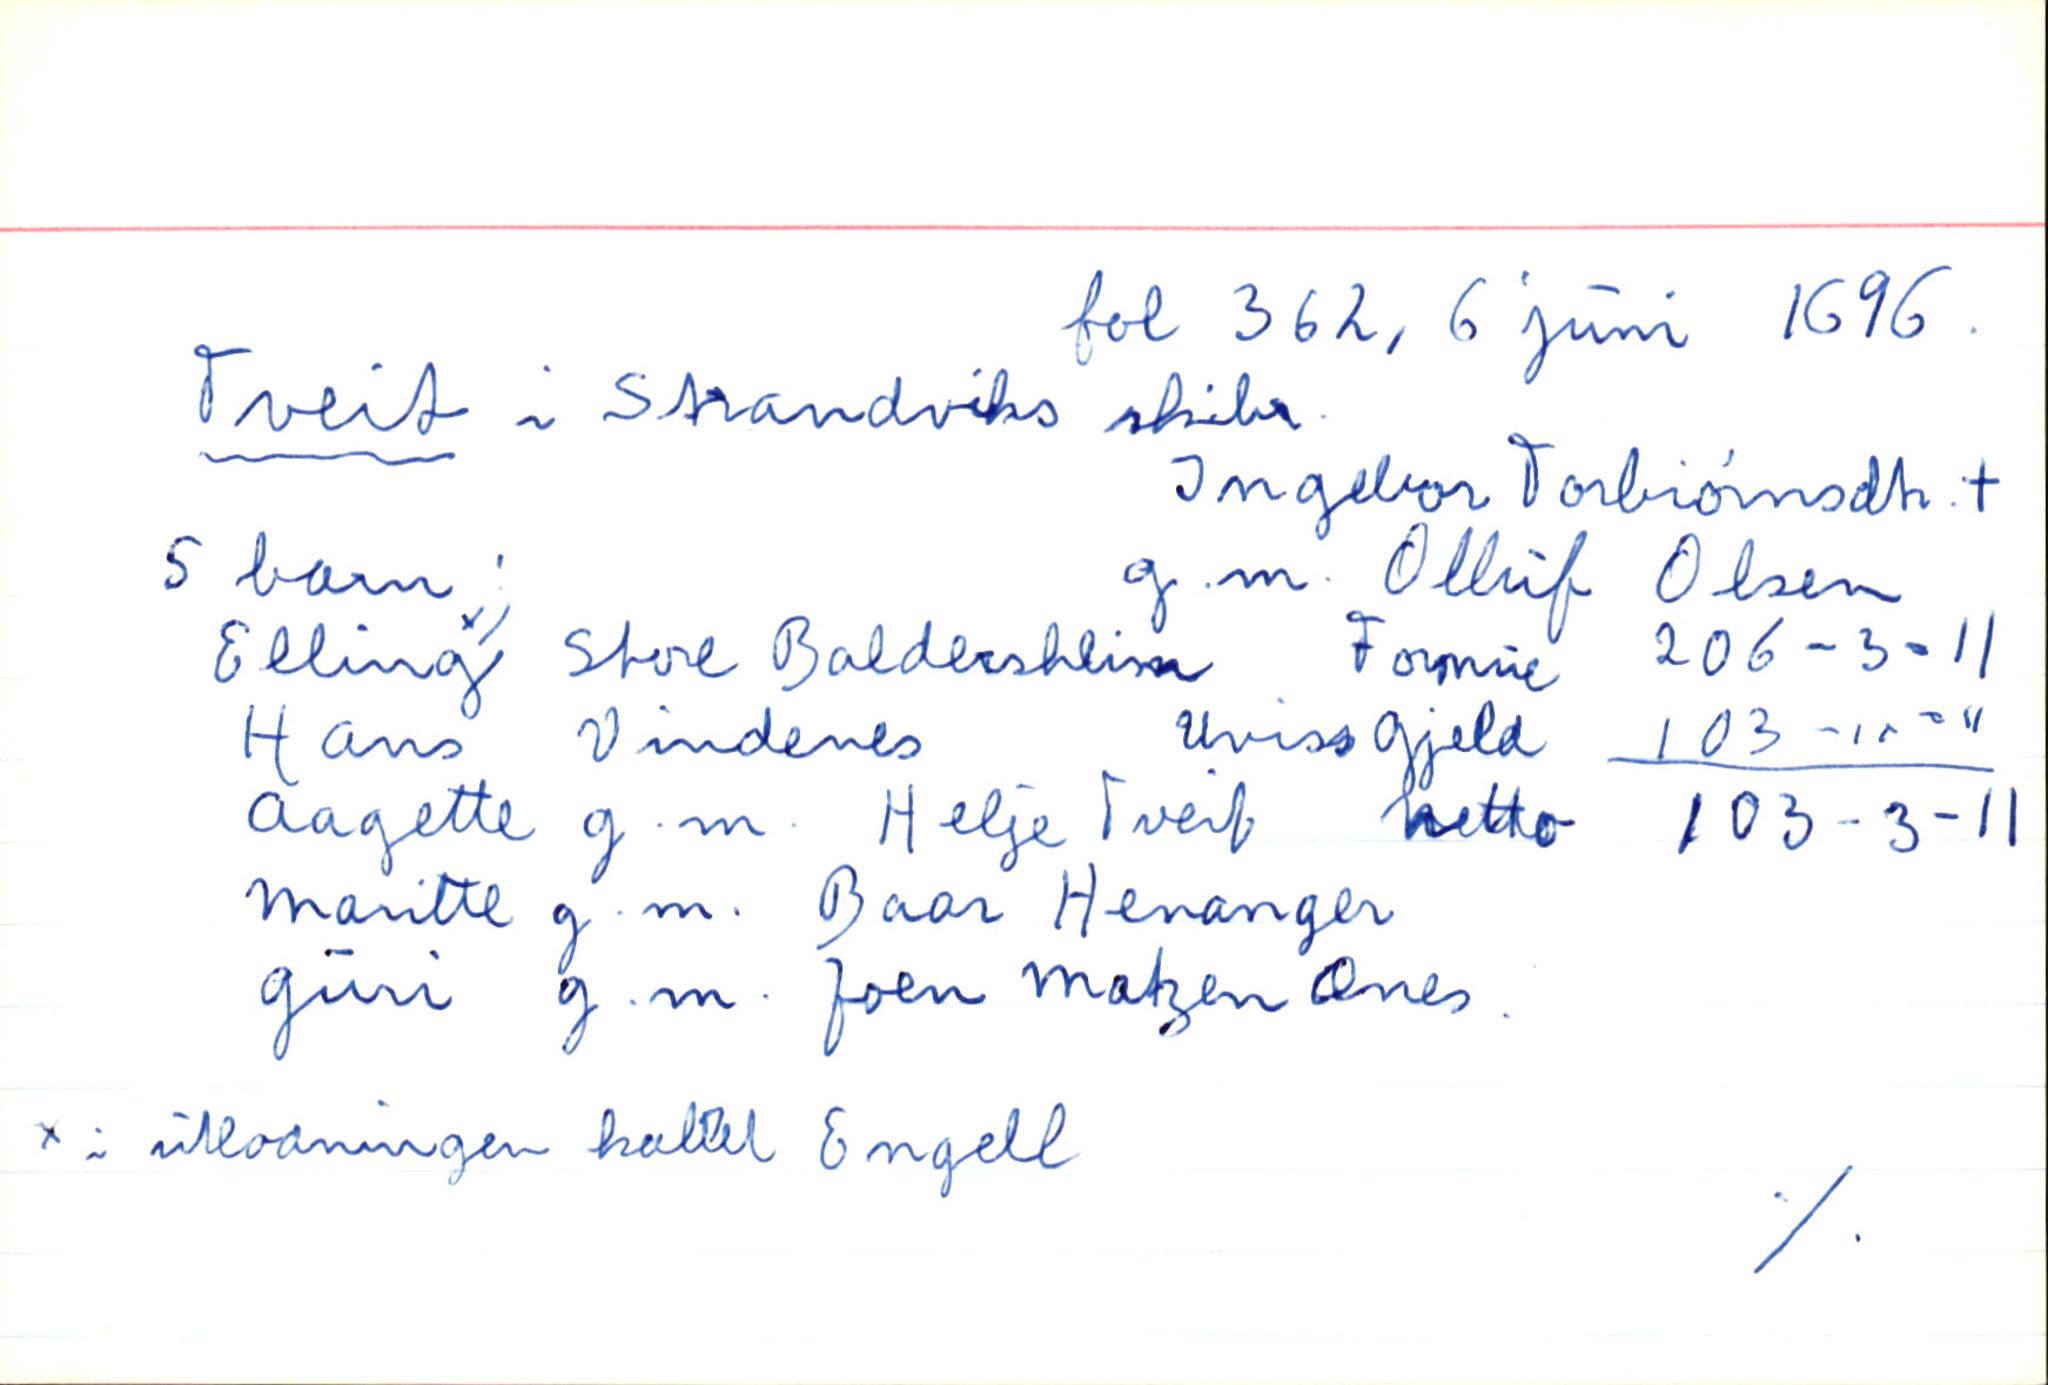 fol 362, 6 juni 1696.
Tveit i Strandviks skibr.
Ingebor Torbiörnsdtr. +
5 barn; g.m. Olluf Olsen
Elling x) Stoel Baldersheim Formue 206-3-11
Hans Vindenes Uviss Gjeld 103-"-"
Aagette g.m. Helje Tveit netto 103-3-11
Maritte g.m. Baar Henanger
Guri g.m. Joen Matzen Ones.
x i utlodningen kalt Engell
%.